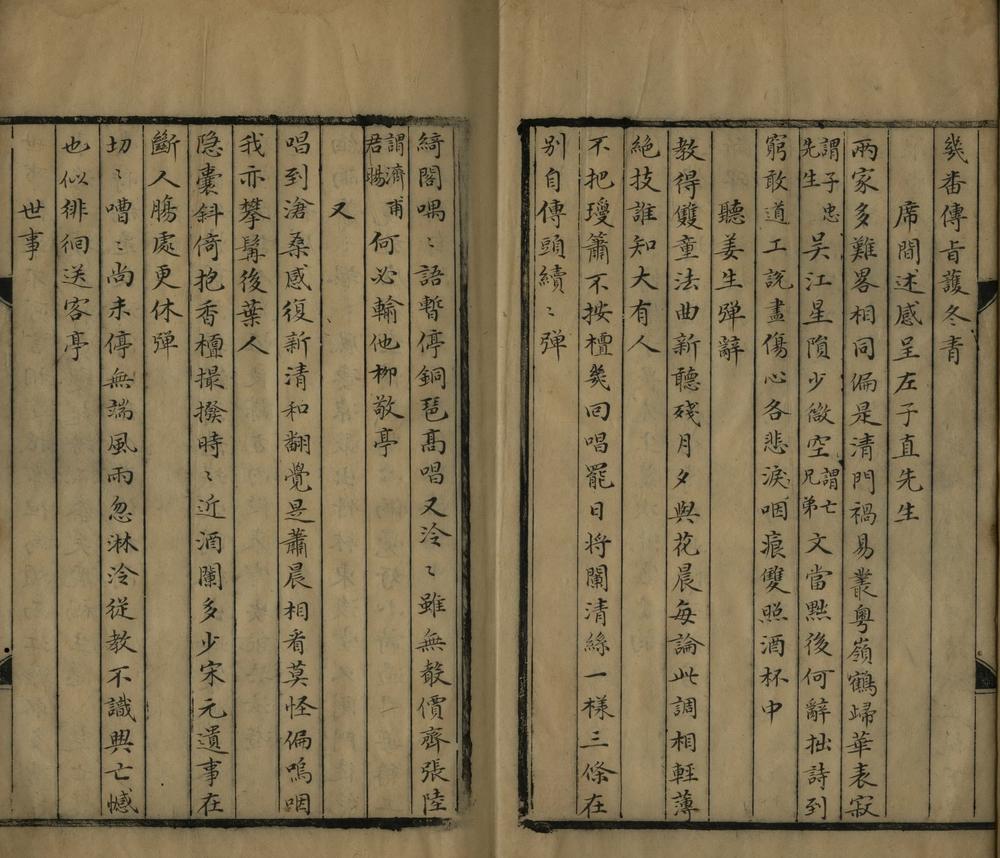 幾番傳旨護冬青
席間述感呈左子直先生
兩家多難畧相同偏是清門禍易叢粤嶺鶴歸華表寂
謂子忠先生吴江星隕少微空謂亡兄弟文當㸃後何辭拙詩到
窮敢道工説盡傷心各悲淚咽痕雙照酒杯中
聽姜生弹辭
教得雙童法曲新聽殘月夕與花晨每論此調相輕薄
絶技誰知大有人
不把瓊簫不按檀幾回唱罷日將闌清絲一様三條在
别自傳頭續〻弹
綺閣喁〻語暫停銅琶髙唱又泠〻雖無聲價齊張陸
謂濟甫君暘何必輸他柳敬亭
又
唱到滄桑感復新清和翻覺是蕭晨相看莫怪偏嗚咽
我亦攀髯後葉人
隐囊斜倚抱香檀撮撥時〻近酒闌多少宋元遺事在
斷人膓處更休弹
切〻嘈〻尚未停無端風雨忽淋泠從教不識興亡憾
也似徘徊送客亭
世事